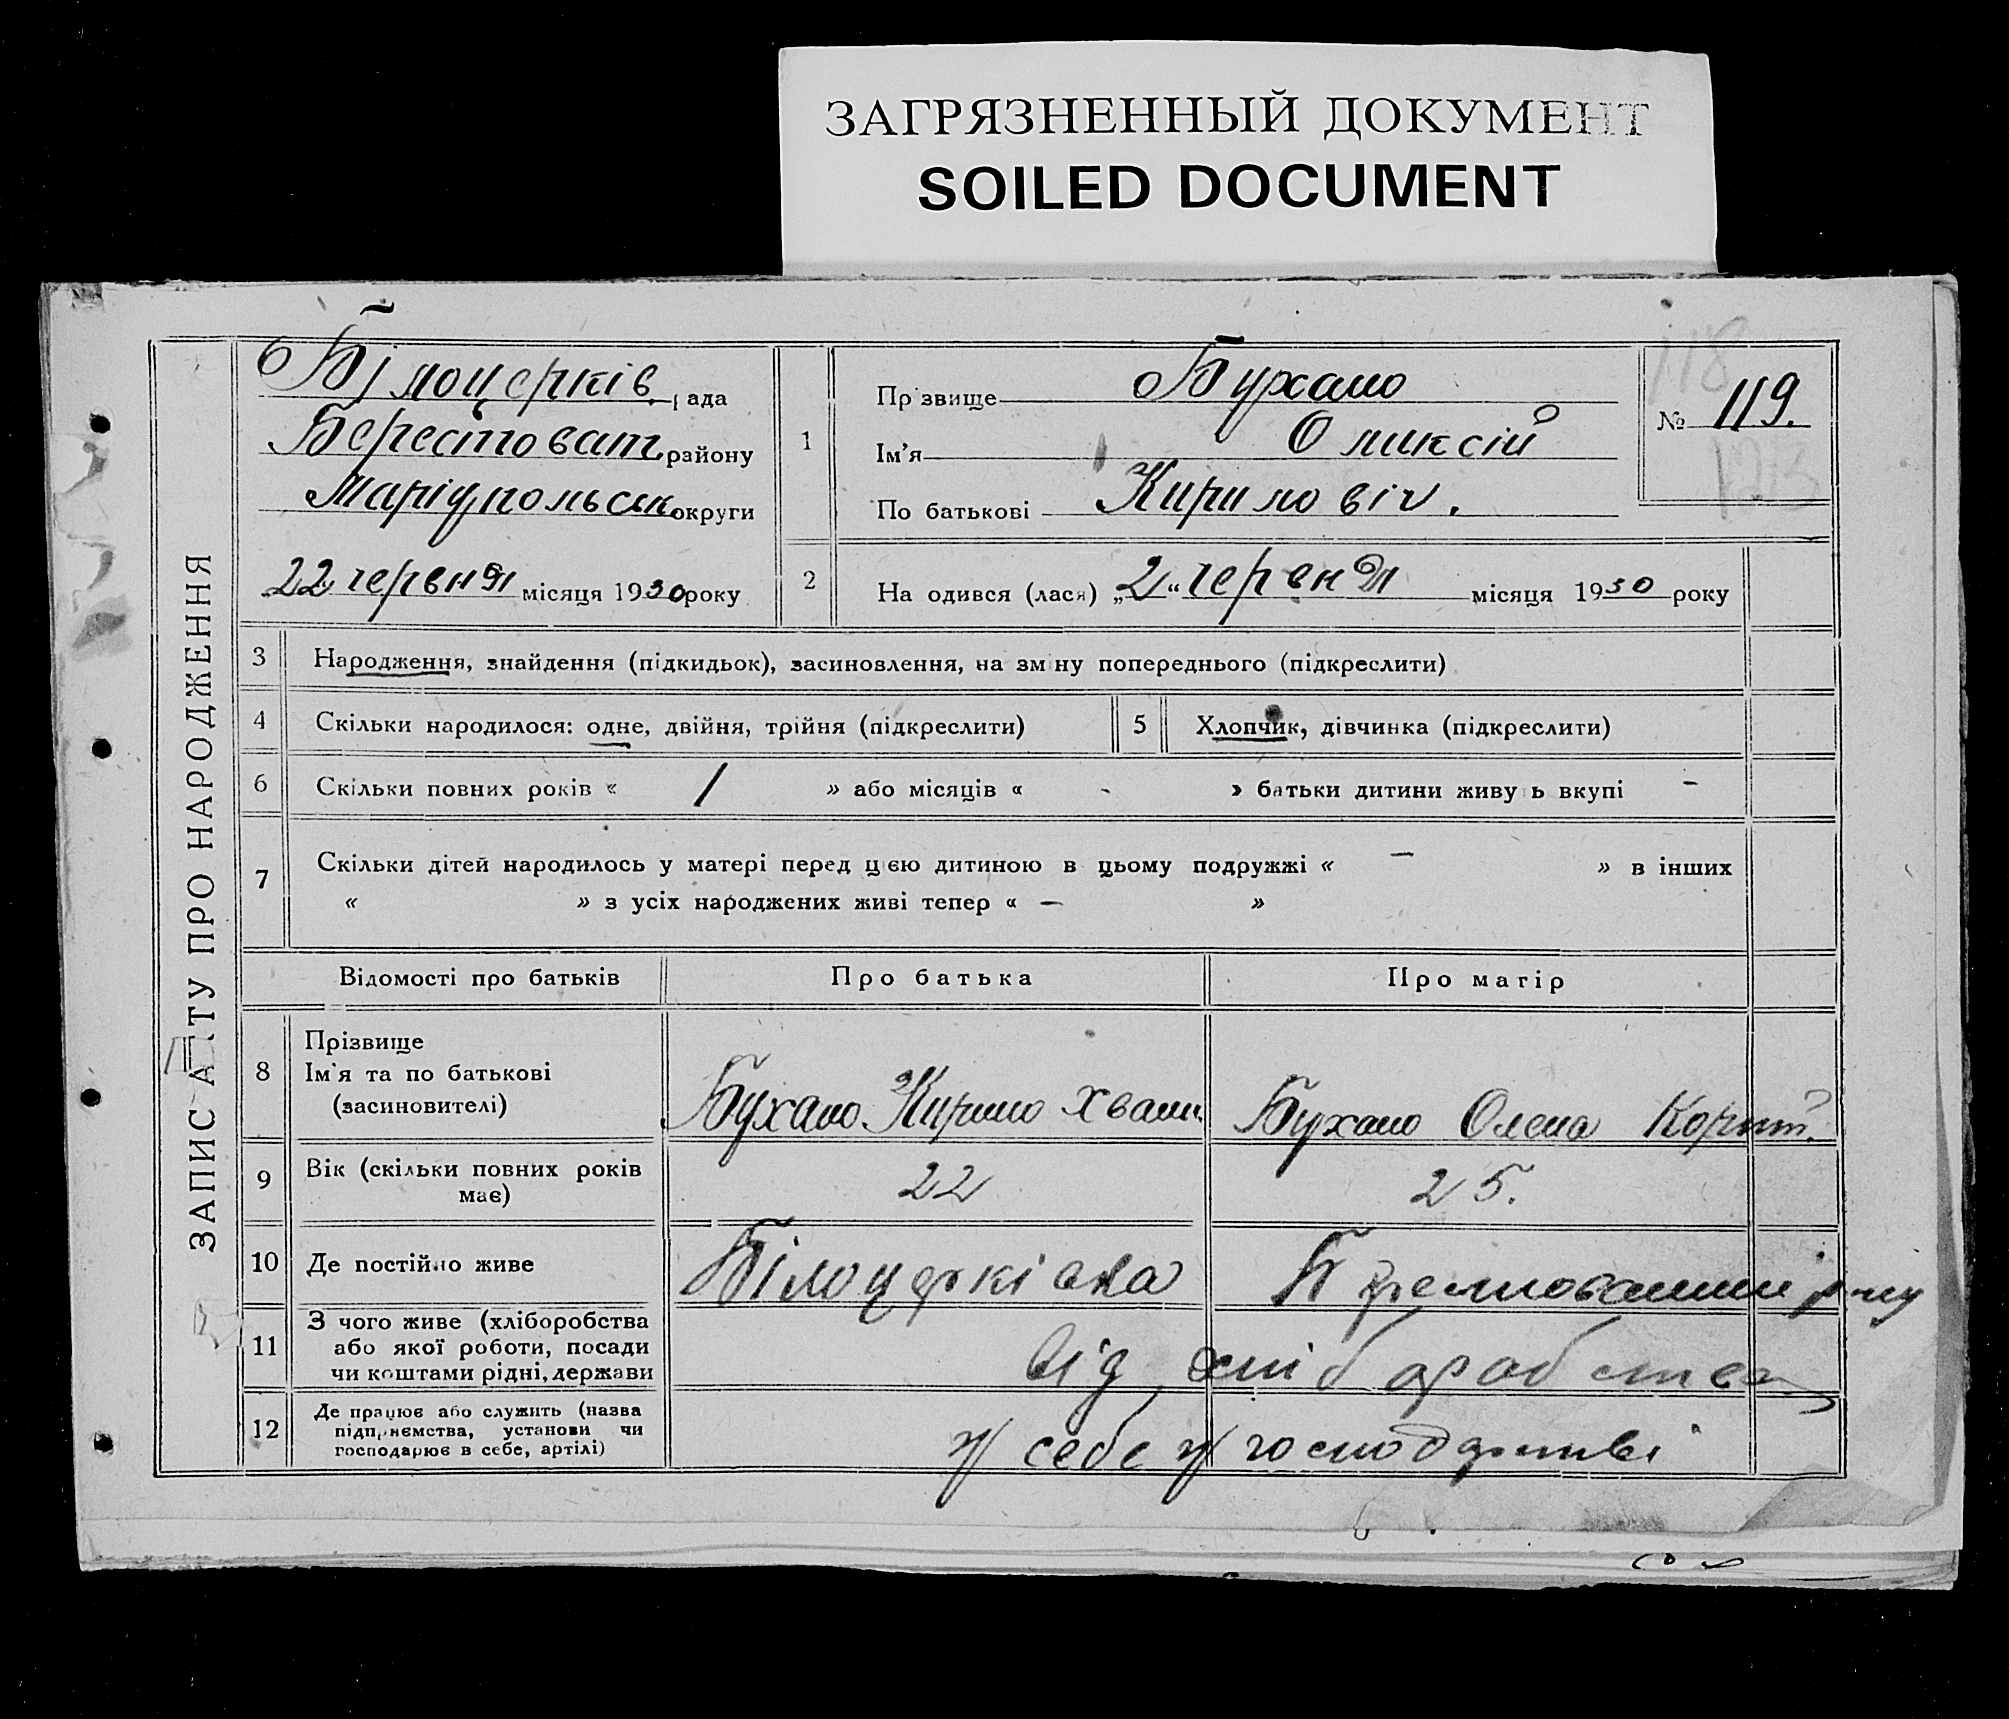 ЗАГРЯЗНЕННЫЙ ДОКУМЕНТ
SOILED DOCUMENT
ЗАПИС АКТУ ПРО НАРОДЖЕННЯ
Білоцерків. рада
Берестоват. району
Маріупольськ. округи
22 червня місяця 1930 року
1
Прізвище Бухало
Ім'я Оликсій
По батькові Кирилович.
№ 119.
118
123
2 На одився (лася) „2“ червня місяця 1930 року
3 Народження, знайдення (підкидьок), засиновлення, на зміну попереднього (підкреслити)
4 Скільки народилося: одне, двійня, трійня (підкреслити)
5 Хлопчик, дівчинка (підкреслити)
6 Скільки повних років « 1 » або місяців « - » батьки дитини живуть вкупі –
7 Скільки дітей народилось у матері перед цією дитиною в цьому подружжі « – » в інших
« » з усіх народжених живі тепер « – »
Відомості про батьків Про батька Про матір
8 Прізвище
Ім'я та по батькові
(засиновителі)
Бухало Кирило Бухало Олена
9 Вік (скільки повних років
має)
22 25.
10 Де постійно живе Білоцерківка
11 З чого живе (хліборобства
або якої роботи, посади
чи коштами рідні, держави
від хліборобства
12 Де працює або служить (назва
підприємства, установи чи
господарює в себе, артілі)
у себе у господарстві